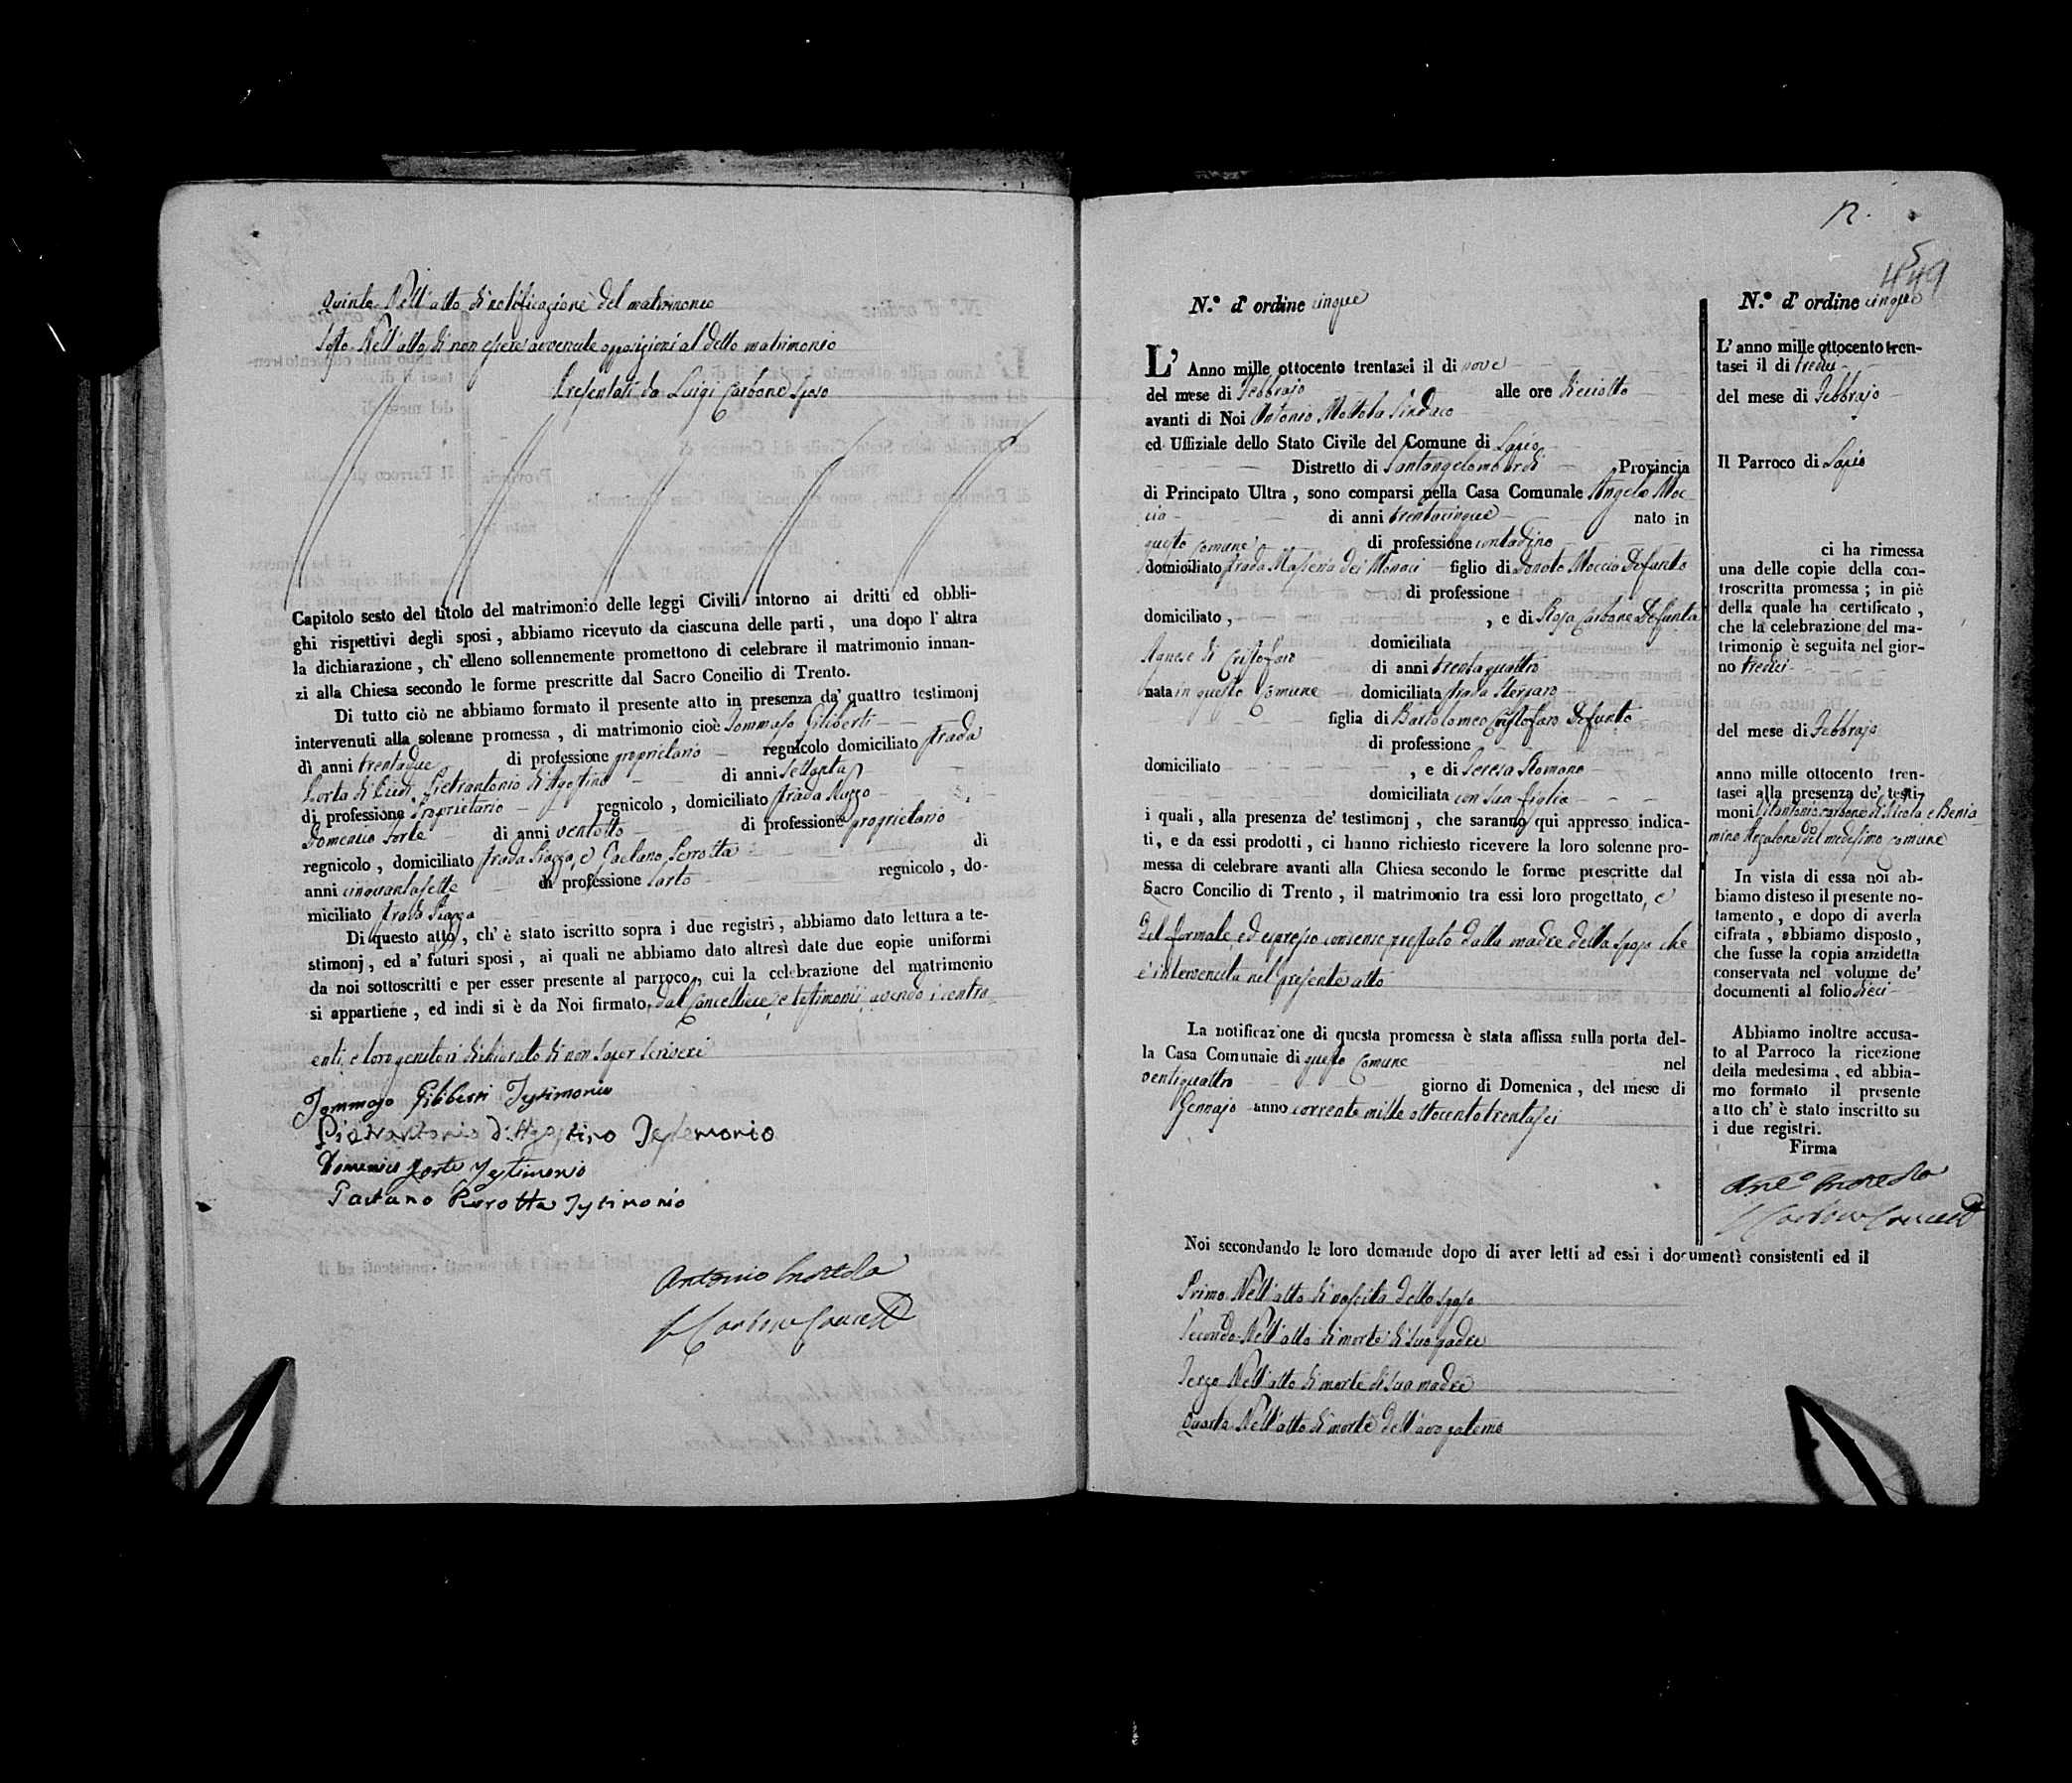 Quinto Nell'atto di notificazione del matrimonio
Sesto Nell'atto di non essere avvenute opposizioni al detto matrimonio
Presentati da Luigi Carbone sposo
Capitolo sesto del titolo del matrimonio delle leggi Civili intorno ai dritti ed obbli-
ghi rispettivi degli sposi, abbiamo ricevuto da ciascuna delle parti, una dopo l'altra
la dichiarazione, ch'elleno sollennemente promettono di celebrare il matrimonio innan-
zi alla Chiesa secondo le forme prescritte dal Sacro Concilio di Trento.
Di tutto ciò ne abbiamo formato il presente atto in presenza da' quattro testimonj
intervenuti alla solenne promessa, di matrimonio cioè Tommaso Giliberti
di anni trentadue di professione proprietario regnicolo domiciliato strada
Porta di Pietrantonio d'Agostino di anni settanta
di professione Proprietario regnicolo, domiciliato strada
Domenico Forte di anni ventotto di professione proprietario
regnicolo, domiciliato strada Piazza, e Gaetano Perrotta di
anni cinquantasette di professione Sarto regnicolo, do-
miciliato strada Piazza
Di questo atto, ch'è stato iscritto sopra i due registri, abbiamo dato lettura a te-
stimonj, ed a' futuri sposi, ai quali ne abbiamo dato altresì date due copie uniformi
da noi sottoscritti e per esser presente al parroco, cui la celebrazione del matrimonio
si appartiene, ed indi si è da Noi firmato, dal Cancelliere, e testimonii avendo i contra-
enti, e loro genitori dichiarato di non saper scrivere
Tommaso Giliberti Testimonio
Pietrantonio d'Agostino Testemonio
Domenico Forte Testimonio
Gaetano Perrotta Testimonio
Antonio Mottola
Carbone Cancell
12.
5
449
N.° d'ordine cinque
L'Anno mille ottocento trentasei il di nove
del mese di Febbrajo alle ore dieciotto
avanti di Noi Antonio Mottola Sindaco
ed Uffiziale dello Stato Civile del Comune di Lapio
Distretto di Santangelolombardi Provincia
di Principato Ultra, sono comparsi nella Casa Comunale Angelo Moc
cia di anni trentacinque nato in
questo Comune di professione contadino
domiciliato strada Masseria dei Monaci figlio di Donato Moccia Defunto
di professione
domiciliato, , e di Rosa Carbone Defunta
domiciliata
Agnese di Cristofaro di anni trentaquattro
nata in questo Comune domiciliata strada
figlia di Bartolomeo Cristofaro Defunto
di professione
domiciliato , e di Teresa Romano
domiciliata con sua figlia
i quali, alla presenza de' testimonj, che saranno qui appresso indica-
ti, e da essi prodotti, ci hanno richiesto ricevere la loro solenne pro-
messa di celebrare avanti alla Chiesa secondo le forme prescritte dal
Sacro Concilio di Trento, il matrimonio tra essi loro progettato, e
del formale, ed espresso consenso prestato dalla madre della sposa che
è intervenuta nel presente atto
La notificazione di questa promessa è stata affissa sulla porta del-
la Casa Comunale di questo Comune nel
ventiquattro giorno di Domenica, del mese di
Gennajo anno corrente mille ottocento trentasei
Noi secondando le loro domande dopo di aver letti ad essi i documenti consistenti ed il
Primo Nell'atto di nascita dello sposo
Secondo Nell'atto di morte di suo padre
Terzo Nell'atto di morte di sua madre
Quarto Nell'atto di morte dell'avo paterno
N.° d'ordine cinque
L'anno mille ottocento tren-
tasei il di tredici
del mese di Febbrajo
Il Parroco di Lapio
ci ha rimessa
una delle copie della con-
troscritta promessa; in piè
della quale ha certificato,
che la celebrazione del ma-
trimonio è seguita nel gior-
no tredici
del mese di Febbrajo
anno mille ottocento tren-
tasei alla presenza de' testi-
moni Vitantonio Carbone di Nicola e Benia
mino Anzalone del medesimo Comune
In vista di essa noi ab-
biamo disteso il presente no-
tamento, e dopo di averla
cifrata, abbiamo disposto,
che fusse la copia anzidetta
conservata nel volume de'
documenti al folio dieci
Abbiamo inoltre accusa-
to al Parroco la ricezione
della medesima, ed abbia-
mo formato il presente
atto ch'è stato inscritto su
i due registri.
Firma
Ant.° Mottola
Carbone Cancell